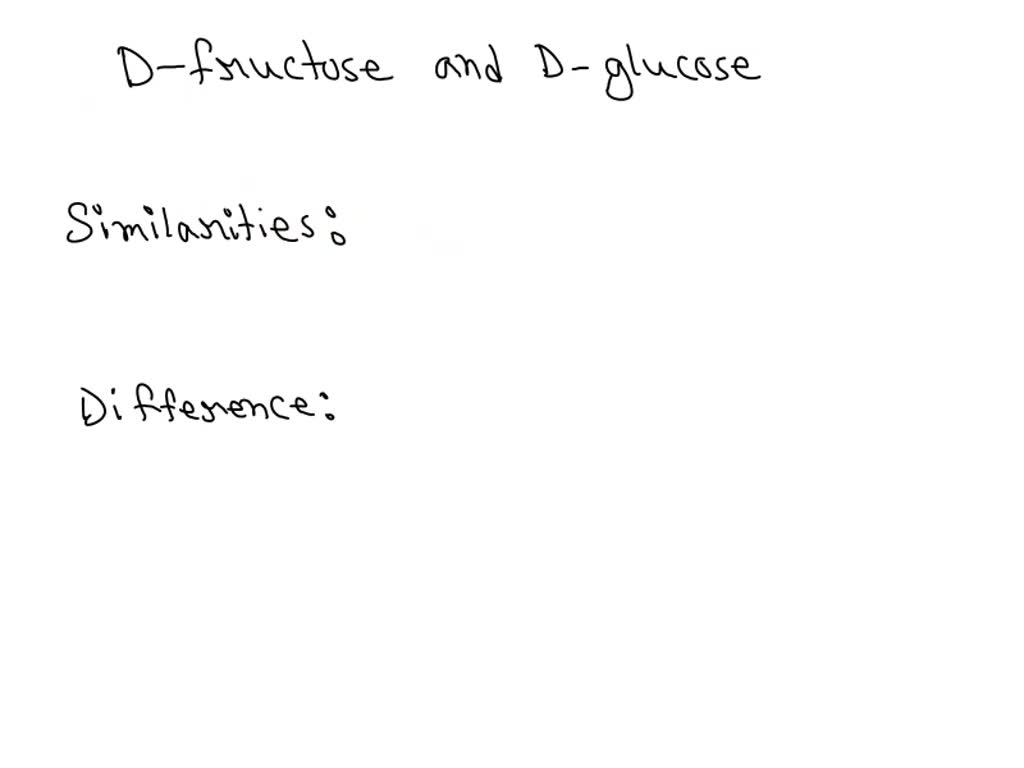 D-fructose and D-glucose
Similarities:
Difference: